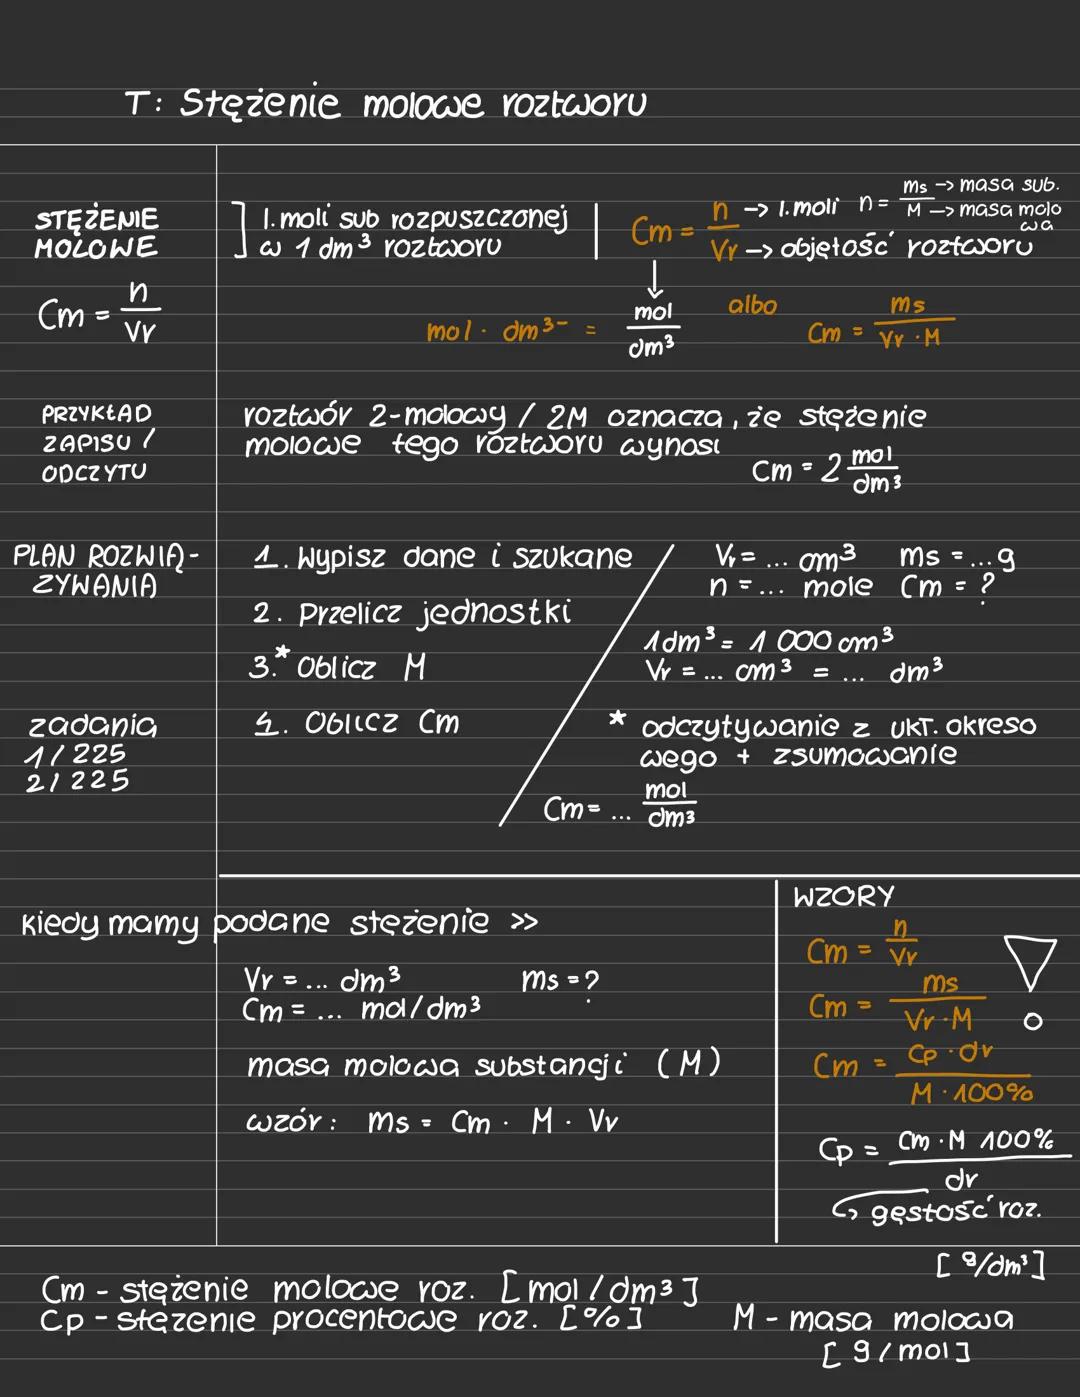 T: Stężenie molowe roztworu
STĘŻENIE
MOLOWE
Cm = n/Vr
] l. moli sub rozpuszczonej
w 1 dm³ roztworu
Cm = n/Vr
n -> l. moli n = ms/M
ms -> masa sub.
M -> masa molo
wa
Vr -> objętość roztworu
mol · dm³⁻ = mol/dm³
albo Cm = ms/Vr · M
PRZYKŁAD
ZAPISU /
ODCZYTU
roztwór 2-molowy / 2M oznacza, że stężenie
molowe tego roztworu wynosi
Cm = 2 mol/dm³
PLAN ROZWIĄ-
ZYWANIA
1. Wypisz dane i szukane
2. Przelicz jednostki
3.* Oblicz M
4. Oblicz Cm
Vr = ... cm³ ms = ... g
n = ... mole Cm = ?
1dm³ = 1 000 cm³
Vr = ... cm³ = ... dm³
* odczytywanie z ukt. okreso
wego + zsumowanie
Cm = ... mol/dm³
zadania
1/225
2/225
kiedy mamy podane stężenie >>
Vr = ... dm³ ms = ?
Cm = ... mol/dm³
masa molowa substancji (M)
wzór: ms = Cm · M · Vr
WZORY
Cm = n/Vr
Cm = ms/Vr · M
Cm = Cp · dr/M · 100%
Cp = Cm · M 100%/dr
gęstość roz.
[g/dm³]
Cm - stężenie molowe roz. [mol/dm³]
Cp - stężenie procentowe roz. [%]
M - masa molowa
[g/mol]